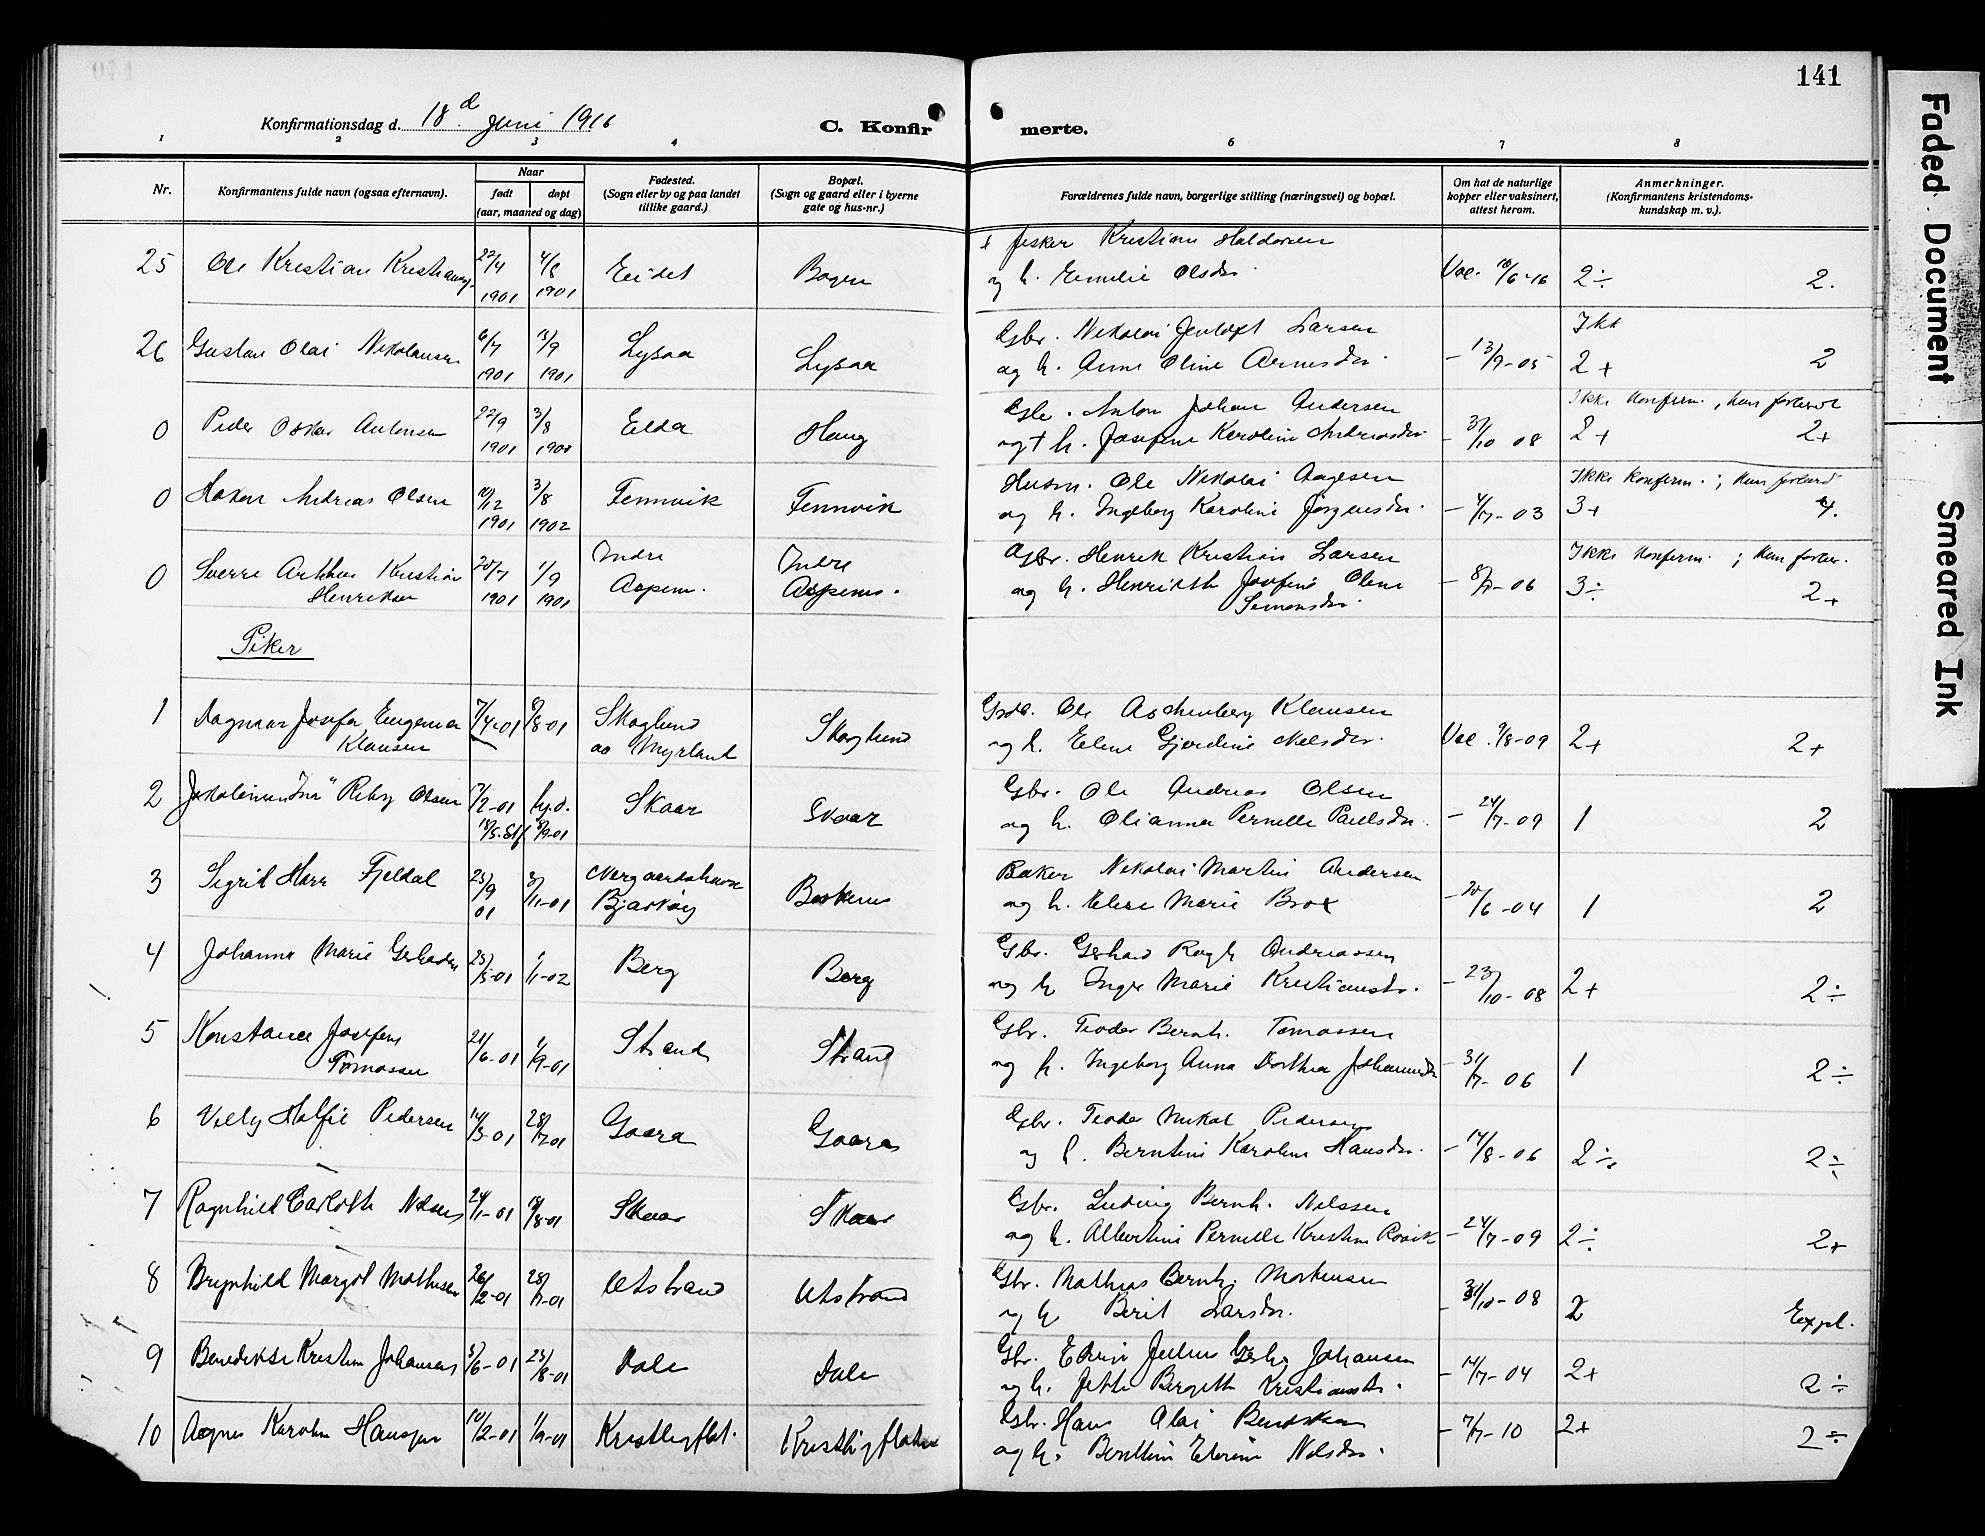 141
Konfirmationsdag d. 18d Juni 1916
C. Konfirmerte.
1 2 3 4 6 7 8
Nr.
Konfirmantens fulde navn (ogsaa efternavn).
Naar
født
døpt
(aar, maaned og dag)
Fødested.
(Sogn eller by og paa landet
tillike gaard.)
Bopæl.
(Sogn og gaard eller i byerne
gate og hus-nr.)
Forældrenes fulde navn, borgerlige stilling (næringsvei) og bopæl.
Om hat de naturlige
kopper eller vaksinert,
attest herom.
Anmerkninger.
(Konfirmantens kristendoms-
kundskap m. v.).
25 Ole Kristian 22/4 1901 4/8 1901 Eidet Bogen
+ fisker Kristian Haldorsen
og h. Emelie Olsdr. Vac. 10/6-16 2÷ 2.
26 Gustav Olai Nikolaisen 6/7 1901 15/9 1901 Lysaa Lysaa
Gbr. Nikolai Jentoft Larsen
og h. Anne Oline Arnesdr. - 13/9-05 Ikk 2+ 2
0 Peder Oskar Antonsen 22/9 1901 3/8 Elda Haug
Gbr. Anton Johan Andersen
og + h. Josefine Karoline Andreasdr. - 31/10 08 Ikke konfirm. 2+ 2+
0 Hakon Andreas Olsen 10/12 1901 3/8 1902 Tennvik Tennvik
Husm. Ole Nikolai Aagesen
og h. Ingeborg Karoline Jørgensdr. - 4/7-03 Ikke konfirm. 3+ 4.
0 Sverre Arthur Kristian
Henriksen 20/7 1901 1/9 1901 Indre
Aspenes. Indre
Aspenes.
Gbr. Henrik Kristian Larsen
og h. Henrikke Josefine Oline
Simonsdr. - 8/7-06 Ikke konfirm. 3÷ 2+
Piker
1 Dagmar Josefa Eugenia
Klausen 7/4-01 8/8-01 Skoglund
av Myrland Skoglund
Ole Aschenberg Klausen
og h. Eline Gjerdine Nelsdr. Vac. 9/8-09 2+ 2+
2 "Ina" Olsen 17/2-01 hj.d. 8/9-01 Skaar Skaar
Gbr. Ole Andreas Olsen
og h. Olianna Pernelle Paulsdr. - 24/7-09 1 2
3 Sigrid Harr Fjeldal 25/9 01 3/11-01 Nergaardshavn
Bjarkøy
Baker Nikolai Martin Andersen
og h. Elise Marie Brox - 20/6-04 1 2
4 Johanna Marie 25/5-01 1/1-02 Berg Berg
Gbr. Gerhard Andreassen
og h. Inger Marie Kristiansdr. - 23/10-08 2+ 2÷
5 Konstance Josefine
Tomassen 21/6-01 1/9-01 Strand Strand
Gbr. Teodor Bernh. Tomassen
og h. Ingeborg Anna Dorthea - 31/7-06 1 2÷
6 Pedersen 14/5-01 28/7-01 Gaara Gaara
Gbr. Teodor Mikal Pedersen
og h. Berntine Karoline Hansdr. - 14/8-06 2÷ 2÷
7 Ragnhild Carlotte Nilsen 24/1-01 18/8-01 Skaar Skaar
Gbr. Ludvig Bernh. Nilssen
og h. Albertine Pernelle Kristine - 24/7-09 2÷ 2+
8 Brynhild Margot Mathisen 26/2-01 28/7-01 Utstrand Utstrand
Gbr. Mathias Bernh. Mortensen
og h. Berit Larsdr. - 31/10-08 2 Expl.
9 Benedikte Kristine Johansen 5/6-01 25/8-01 Dale Dale
Gbr. Edvin Julius Johansen
og h. Jette Bergette Kristiansdr. - 14/7-04 2+ 2÷
10 Agnes Karoline Hansen 10/2-01 1/9-01 Kristligflat. Kristligflaten
Gbr. Hans Olai Bendiksen
og h. Elerine Nilsdr. - 7/7-10 2+ 2÷
Faded Document
Smeared Ink